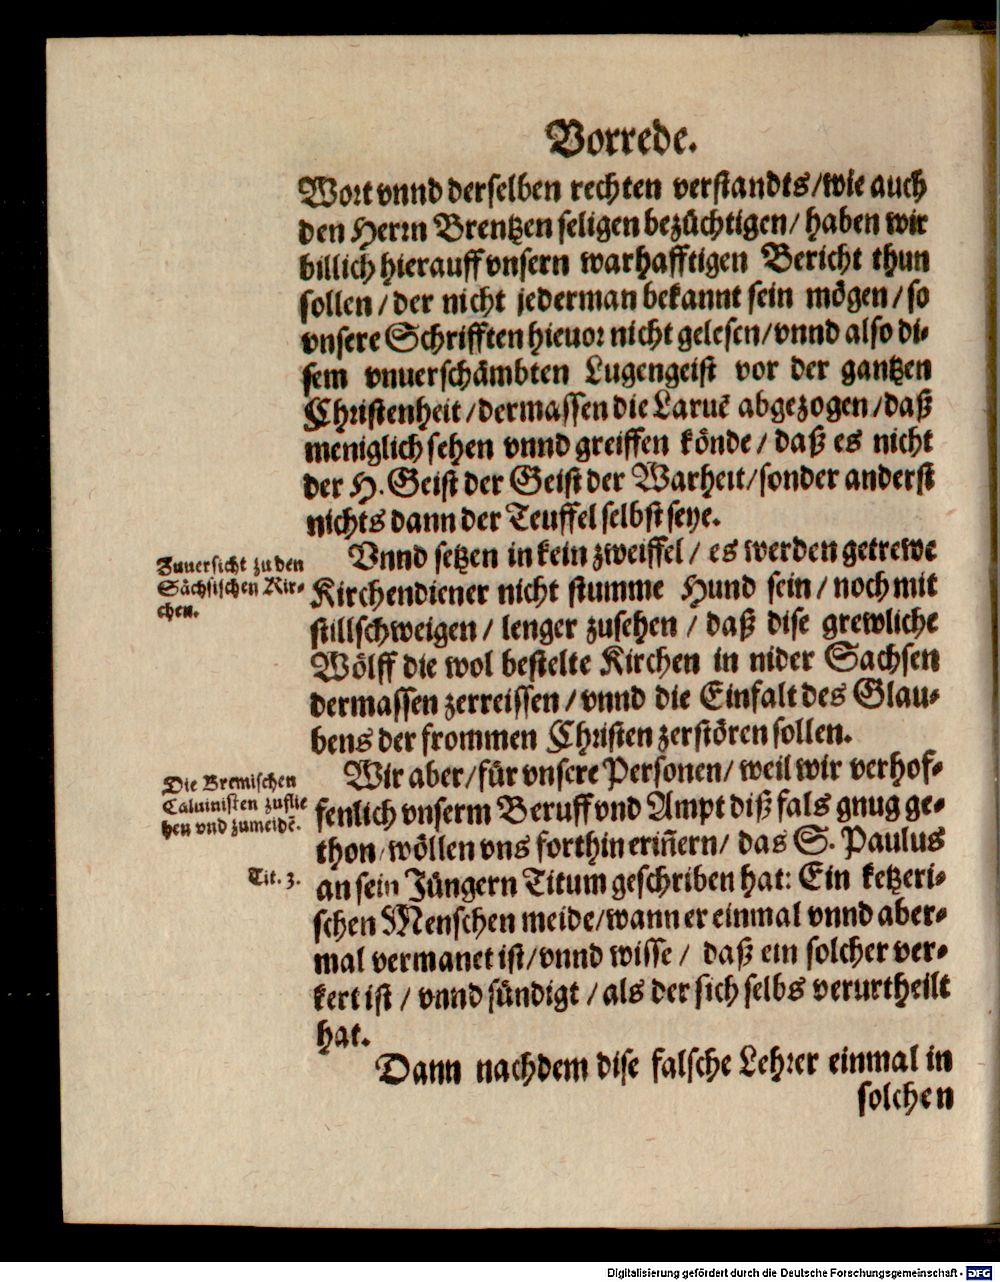 Vorrede.
Wort vnnd derselben rechten verstandts/wie auch
den Herrn Brentzen seligen bezüchtigen/ haben wir
billich hierauff vnsern warhafftigen Bericht thun
sollen/ der nicht jederman bekannt sein mögen/ so
vnsere Schrifften hieuor nicht gelesen/vnnd also di-
sem vnuerschämbten Lugengeist vor der gantzen
Christenheit/dermassen die Laruē abgezogen/daß
meniglich sehen vnnd greiffen könde/ daß es nicht
der H. Geist der Geist der Warheit/sonder anderst
nichts dann der Teuffel selbst seye.
Zuuersicht zu den
Sächsischen Kir-
chen.
Vnnd setzen in kein zweiffel/ es werden getrewe
Kirchendiener nicht stumme Hund sein/ noch mit
stillschweigen/ lenger zusehen/ daß dise grewliche
Wölff die wol bestelte Kirchen in nider Sachsen
dermassen zerreissen/vnnd die Einfalt des Glau-
bens der frommen Christen zerstören sollen.
Die Bremischen
Caluinisten zuflie
hen vnd zumeidē.
Tit. 3.
Wir aber/für vnsere Personen/ weil wir verhof-
fenlich vnserm Beruff vnd Ampt diß fals gnug ge-
thon/wöllen vns forthin eriñern/ das S. Paulus
an sein Jüngern Titum geschriben hat: Ein ketzeri-
schen Menschen meide/wann er einmal vnnd aber-
mal vermanet ist/vnnd wisse/ daß ein solcher ver-
kert ist/ vnnd sündigt/als der sich selbs verurtheilt
hat.
Dann nachdem dise falsche Lehrer einmal in
solchen
Digitalisierung gefördert durch die Deutsche Forschungsgemeinschaft - DFG